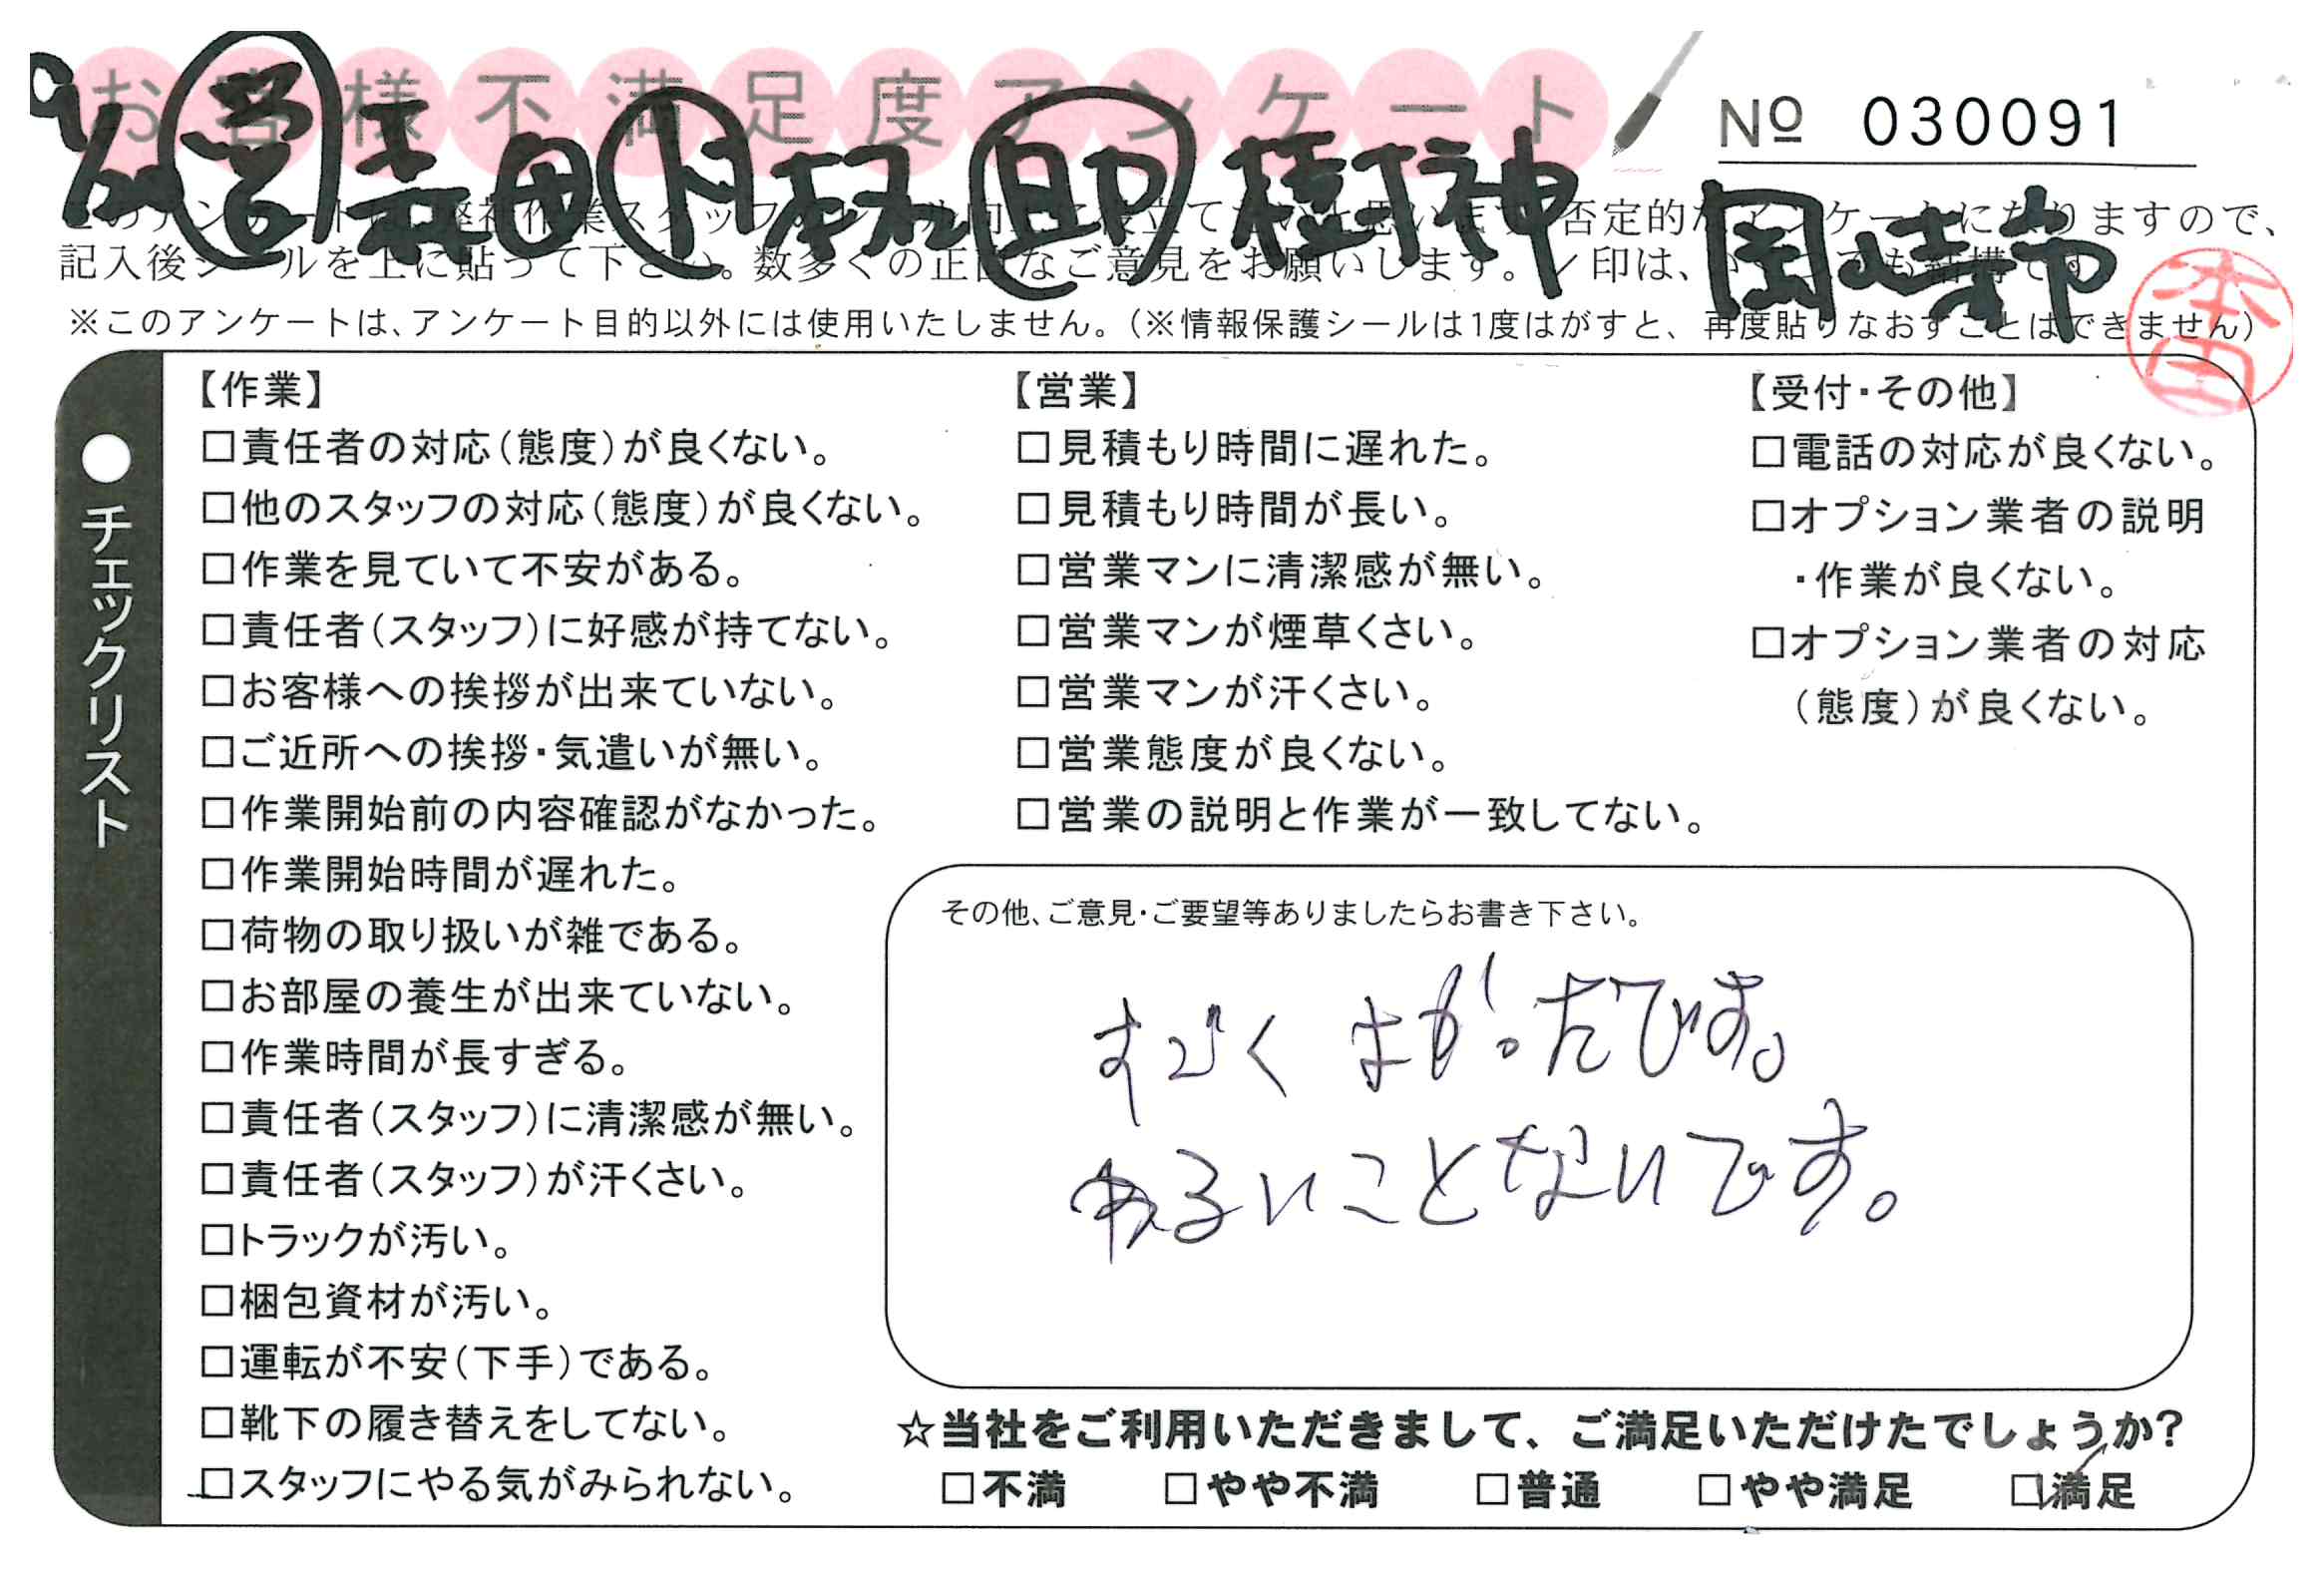 お客様不満足度アンケート
№ 030091
9/20 営 森田
岡崎
記入後シールを上に貼って下さい。数多くの正直なご意見をお願いします。
※このアンケートは、アンケート目的以外には使用いたしません。（※情報保護シールは1度はがすと、再度貼りなおすことはできません）
本田
●チェックリスト
【作業】
□責任者の対応（態度）が良くない。
□他のスタッフの対応（態度）が良くない。
□作業を見ていて不安がある。
□責任者（スタッフ）に好感が持てない。
□お客様への挨拶が出来ていない。
□ご近所への挨拶・気遣いが無い。
□作業開始前の内容確認がなかった。
□作業開始時間が遅れた。
□荷物の取り扱いが雑である。
□お部屋の養生が出来ていない。
□作業時間が長すぎる。
□責任者（スタッフ）に清潔感が無い。
□責任者（スタッフ）が汗くさい。
□トラックが汚い。
□梱包資材が汚い。
□運転が不安（下手）である。
□靴下の履き替えをしてない。
□スタッフにやる気がみられない。
【営業】
□見積もり時間に遅れた。
□見積もり時間が長い。
□営業マンに清潔感が無い。
□営業マンが煙草くさい。
□営業マンが汗くさい。
□営業態度が良くない。
□営業の説明と作業が一致してない。
【受付・その他】
□電話の対応が良くない。
□オプション業者の説明
・作業が良くない。
□オプション業者の対応
（態度）が良くない。
その他、ご意見・ご要望等ありましたらお書き下さい。
すごく よかったです。
わるいことないです。
☆当社をご利用いただきまして、ご満足いただけたでしょうか？
□不満 □やや不満 □普通 □やや満足 ☑満足